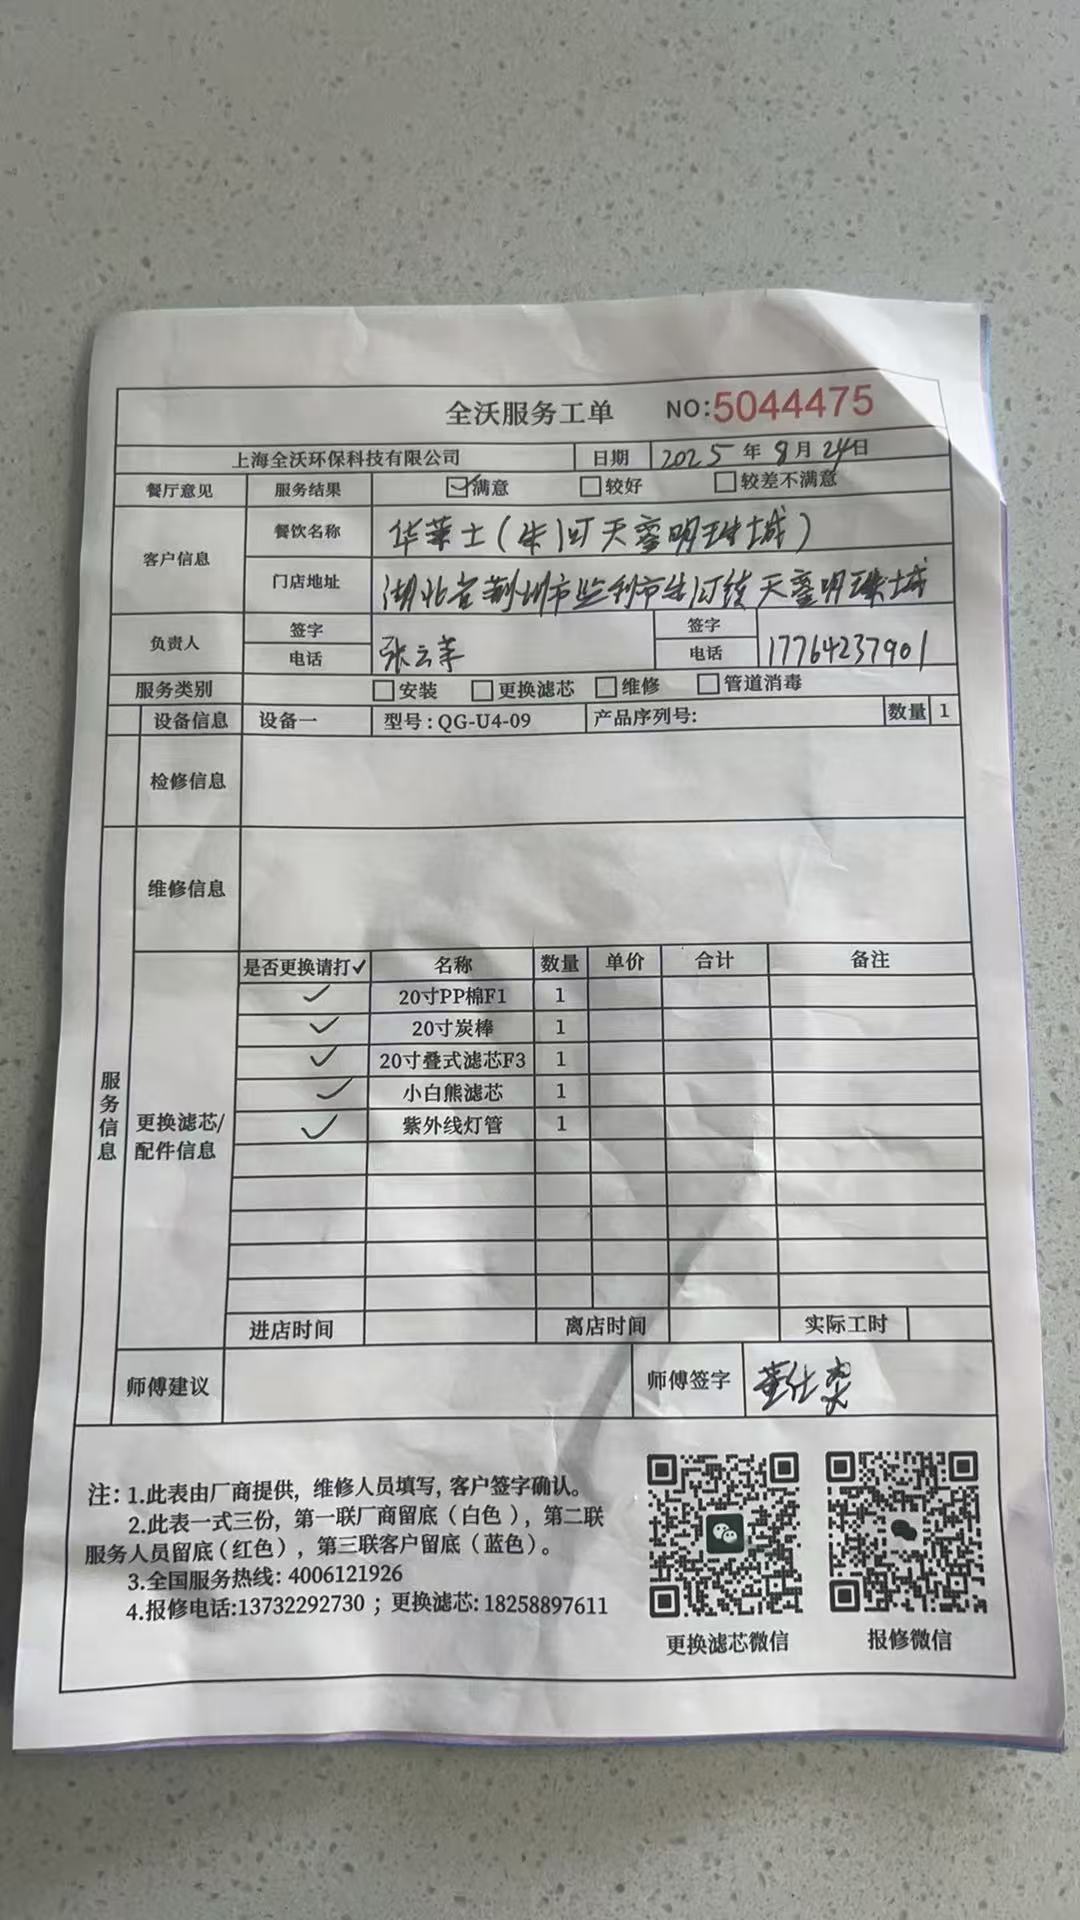 全沃服务工单 NO:5044475
上海全沃环保科技有限公司 日期 2025年8月24日
餐厅意见 服务结果 满意 较好 较差不满意
客户信息 餐饮名称 华莱士(朱河天玺明珠城)
门店地址 湖北省荆州市监利市朱河镇天玺明珠城
负责人 签字 电话 张云 签字 电话 17764237901
服务类别 安装 更换滤芯 维修 管道消毒
服务信息
设备信息 设备一 型号:QG-U4-09 产品序列号: 数量 1
检修信息
维修信息
更换滤芯/配件信息
是否更换请打✓ 名称 数量 单价 合计 备注
✓ 20寸PP棉F1 1
✓ 20寸炭棒 1
✓ 20寸叠式滤芯F3 1
✓ 小白熊滤芯 1
✓ 紫外线灯管 1
进店时间 离店时间 实际工时
师傅建议 师傅签字 董仕
注:1.此表由厂商提供,维修人员填写,客户签字确认。
2.此表一式三份,第一联厂商留底(白色),第二联
服务人员留底(红色),第三联客户留底(蓝色)。
3.全国服务热线:4006121926
4.报修电话:13732292730;更换滤芯:18258897611
更换滤芯微信 报修微信